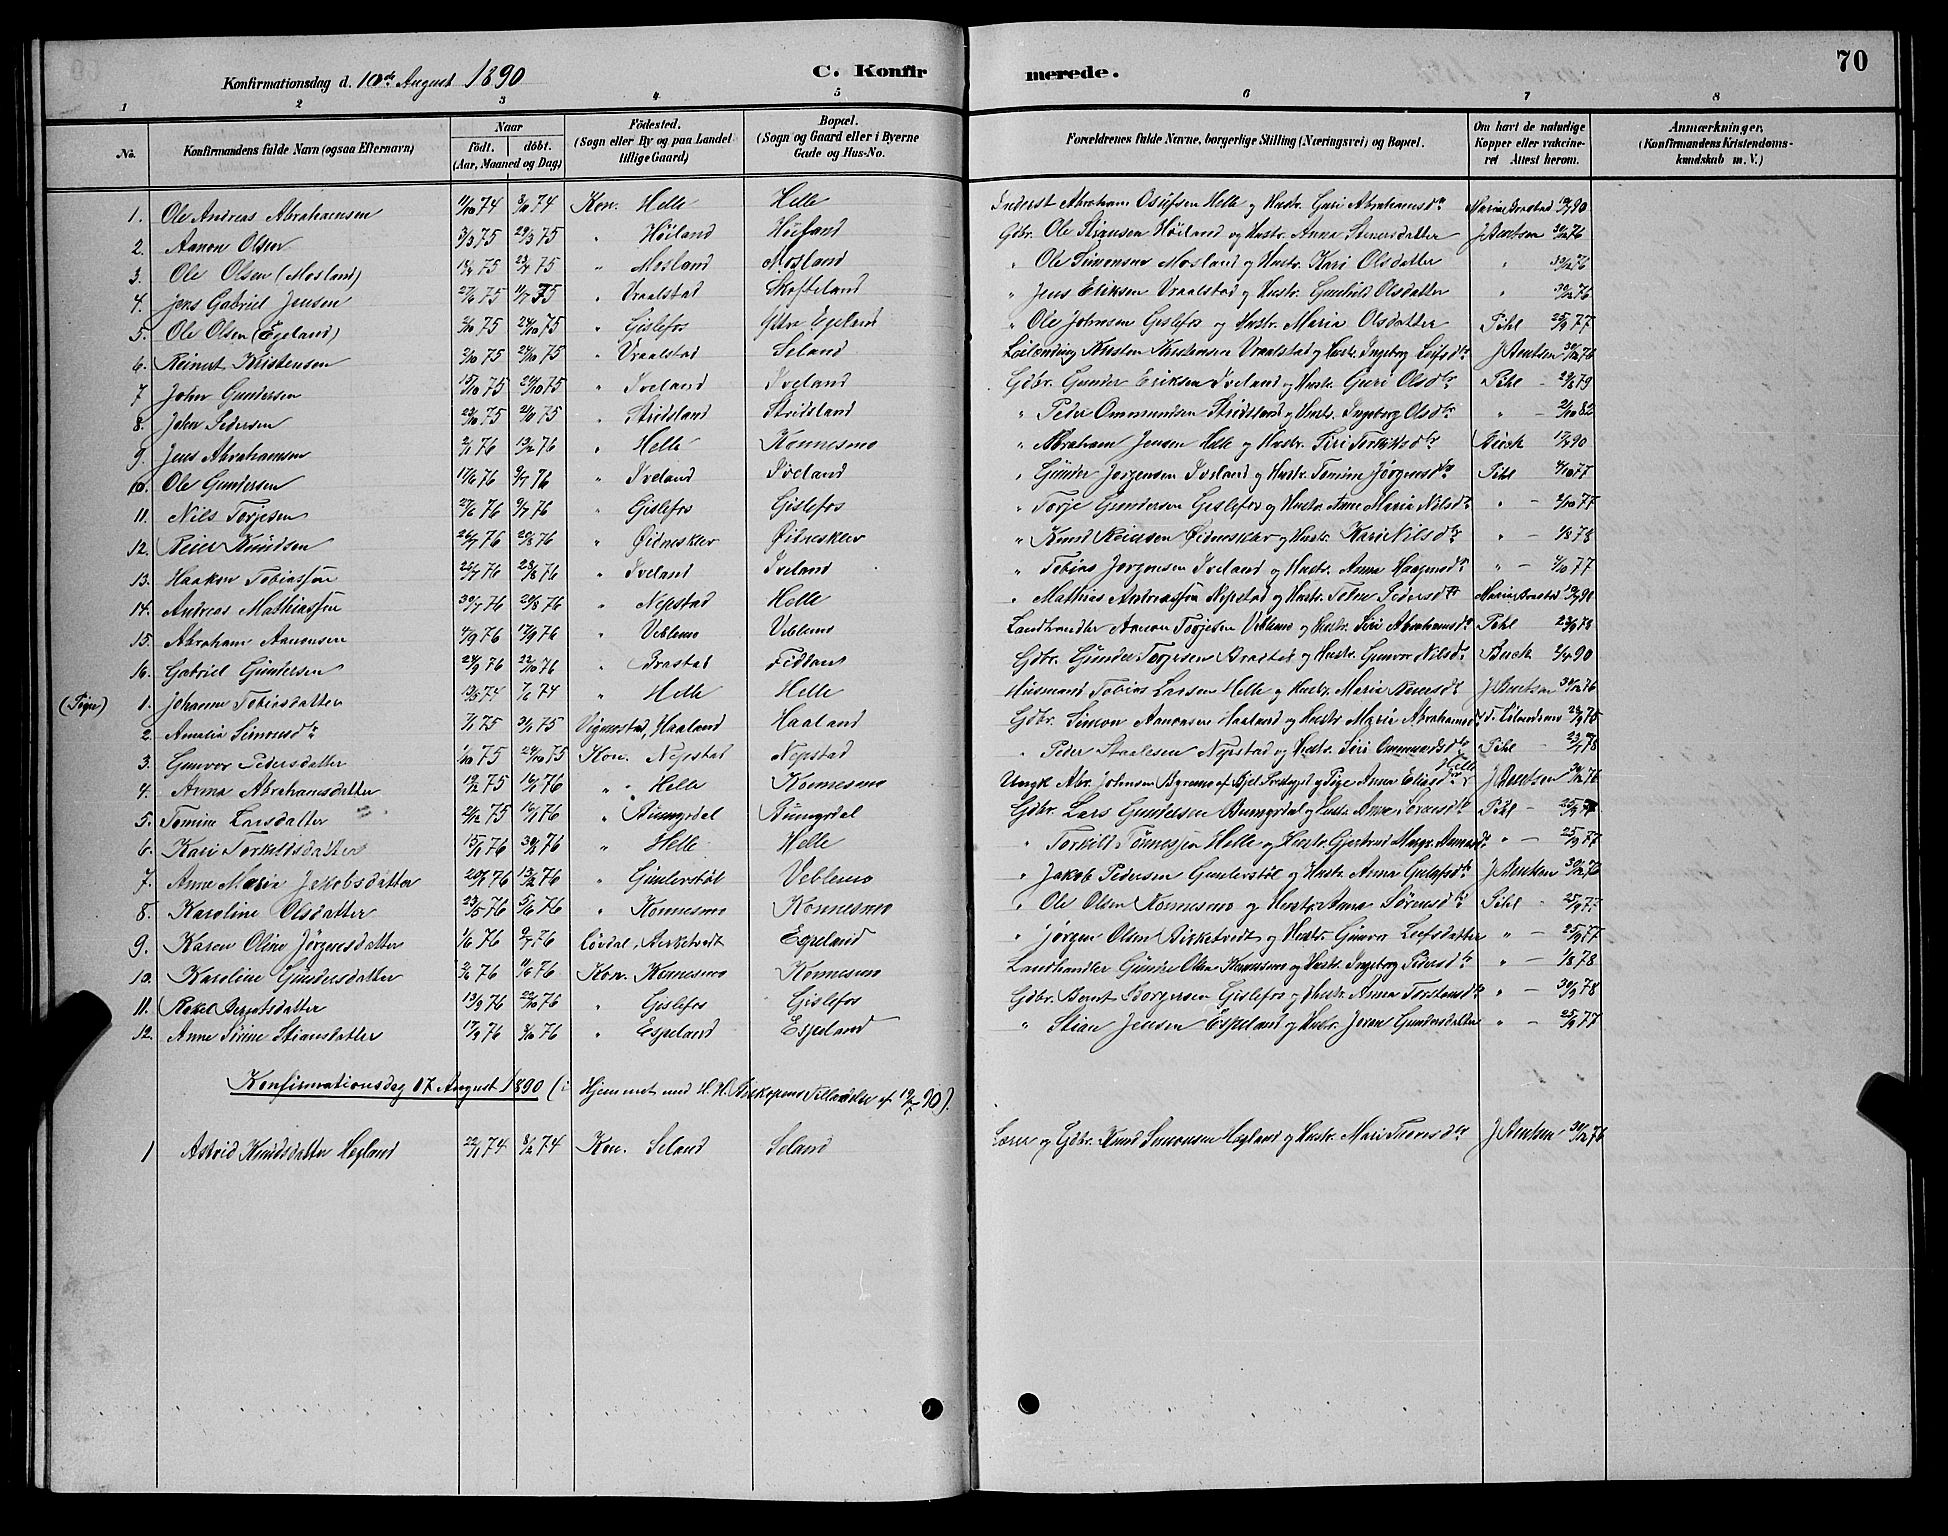 70
Konfirmationsdag d. 10de August 1890 C. Konfirmerede.
1 2 3 4 5 6 7 8
No. Konfirmandens fulde Navn (ogsaa Efternavn) Naar født, døbt. (Aar, Maaned og Dag) Fødested. (Sogn eller By og paa Landet tillige Gaard) Bopæl. (Sogn og Gaard eller i Byerne Gade og Hus-No. Forældrenes fulde Navne, borgerlige Stilling (Næringsvei) og Bopæl. Om havt de naturlige Kopper eller vakcineret Attest herom. Anmærkninger, (Konfirmandens Kristendomskundskab m. V.)
1. Ole Andreas Abrahamsen 74 74 Kon. Helle Helle Inderst Abraham Osufsen Helle og Hustr. Guri Abrahamsdr Maria Brastad 90
2. Aanon Olsen 3/3 75 29/3 75 " Høiland Høiland Gbr. Ole Stiansen Høiland og Hustr. Anne Stenersdatter J Bentsen 30/12 76
3. Ole Olsen (Mosland) 75 75 " Mosland Mosland " Ole Simonsen Mosland og Hustr. Kari Olsdatter " 30/12 76
4. Jens Gabriel Jensen 27/6 75 11/7 75 " Vraalstad Skofteland " Jens Eriksen Vraalstad og Hustr. Gunhild Olsdatter " 30/12 76
5. Ole Olsen (Egeland) 75 24/10 75 " Gislefos Ytre Egeland " Ole Johnsen Gislefos og Hustr. Maria Olsdatter Pihl 25/9 77
6. Reinert Kristensen 75 24/10 75 " Vraalstad Seland Kristen Kristensen Vraalstad og Hustr. Ingeborg Leifsdr J Bentsen 30/12 76
7 John Gundersen 15/10 75 24/10 75 " Iveland Iveland Gbr. Gunder Eriksen Iveland og Hustr. Guri Olsdr Pihl - 79
8. John Pedersen 75 75 " Stridsland Stridsland " Peder Ommundsen Stridsland og Hustr. Ingeborg Olsdr " - 82
9. Jens Abrahamsen 76 13/2 76 " Helle Konnesmo " Abraham Jensen Helle og Hustr. Siri Terkildsdr Birch 90
10. Ole Gundersen 17/6 76 9/7 76 " Iveland Iveland " Gunder Jørgensen Iveland og Hustr. Tomine Jørgensdr Pihl 77
11. Nils Torjesen 27/6 76 9/7 76 " Gislefos Gislefos " Torje Gundersen Gislefos og Hustr. Anne Maria Nilsdr " - 77
12. Reier Knudsen 76 20/8 76 " Øidneskler Øidneskler " Knud Reiersen Øidneskler og Hustr. Kari Nilsdr " - 1/8 78
13. Haakon Tobiassen 76 76 " Iveland Iveland " Tobias Jørgensen Iveland og Hustr. Anna Haagensdr " - 77
14. Andreas Mathiassen 30/7 76 20/8 76 " Nepstad Helle " Mathias Andreassen Nepstad og Hustr. Tolne Pedersdr Maria Braatad 90
15. Abraham Aanonsen 4/9 76 17/9 76 " Veblemo Veblemo Landhandler Aanon Torjesen Veblemo og Hustr. Siri Abrahamsdr Pihl 78
16. Gabriel Gundersen 24/9 76 22/10 76 " Brastad Fidlan Gbr. Gunder Torjesen Brastad og Hustr. Gunvor Nilsdr Birch 90
(Piger) 1. Johanne Tobiasdatter 74 74 " Helle Helle Husmand Tobias Larsen Helle og Hustr. Maria J Bentsen 30/12 76
2. Amalia Simonsdr 75 75 Vigmostad, Haaland Haaland Gbr. Simon Aanonsen Haaland og Hustr. Maria Abrahamsdr
3. Gunvor Pedersdatter 75 24/10 75 Kon. Nepstad Nepstad " Peder Staalesen Nepstad og Hustr. Siri Ommundsdr Pihl - 78
4. Anna Abrahamsdatter 19/2 75 16/1 76 " Helle Konnesmo Ungk. Abr. Johnsen Byremo af Bjel. Prstgjd og Pige Anna Eliasdr Helle J Bentsen 30/12 76
5. Tomine Larsdatter 75 16/1 76 " Bumyrdal Bumyrdal Gbr. Lars Gundersen Bumyrdal og Hustr. Anne Pihl -
6. Kari Torkildsdatter 15/1 76 30/1 76 " Helle Helle " Torkild Tønnessen Helle og Hustr. Gjertrud " - 25/9 77
7. Anne Maria Jakobsdatter 76 13/2 76 " Gunlerstøl Veblemo " Jakob Pedersen Gunlerstøl og Hustr. Anna J Bentsen 30/12 76
8. Karoline Olsdatter 23/5 76 5/6 76 " Konnesmo Konnesmo " Ole Olsen Konnesmo og Hustr. Anna Sørensdr Pihl - 25/9 77
9. Karen Oline Jørgensdatter 1/6 76 9/7 76 Løvdal, Birketvedt Egeland " Jørgen Olsen Birketvedt og Hustr. Gunvor Leifsdatter " - 25/9 77
10. Karoline Gundersdatter 76 11/6 76 Kon. Konnesmo Konnesmo Landhandler Gunder Olsen Konnesmo og Hustr. Ingeborg Pedersdr " - 1/8 78
11. Rakel Berntsdatter 13/9 76 22/10 76 " Gislefos Gislefos Gbr. Bernt Børgesen Gislefos og Hustr. Anna Torstensdr " - 78
12. Anne Sirine Stiansdatter 17/9 76 76 " Espeland Espeland " Stian Jensen Espeland og Hustr. Joren Gundersdatter " - 25/9 77
Konfirmationsdag 17 August 1890 (i Hjemmet med H. H. Biskopens Tilladelse af 90).
1 Astrid Knudsdatter Høgland 22/1 74 8/2 74 Kon. Seland Seland Lærer og Gbr. Knud Simonsen Høgland og Hustr. Mari J Bentsen 30/12 76